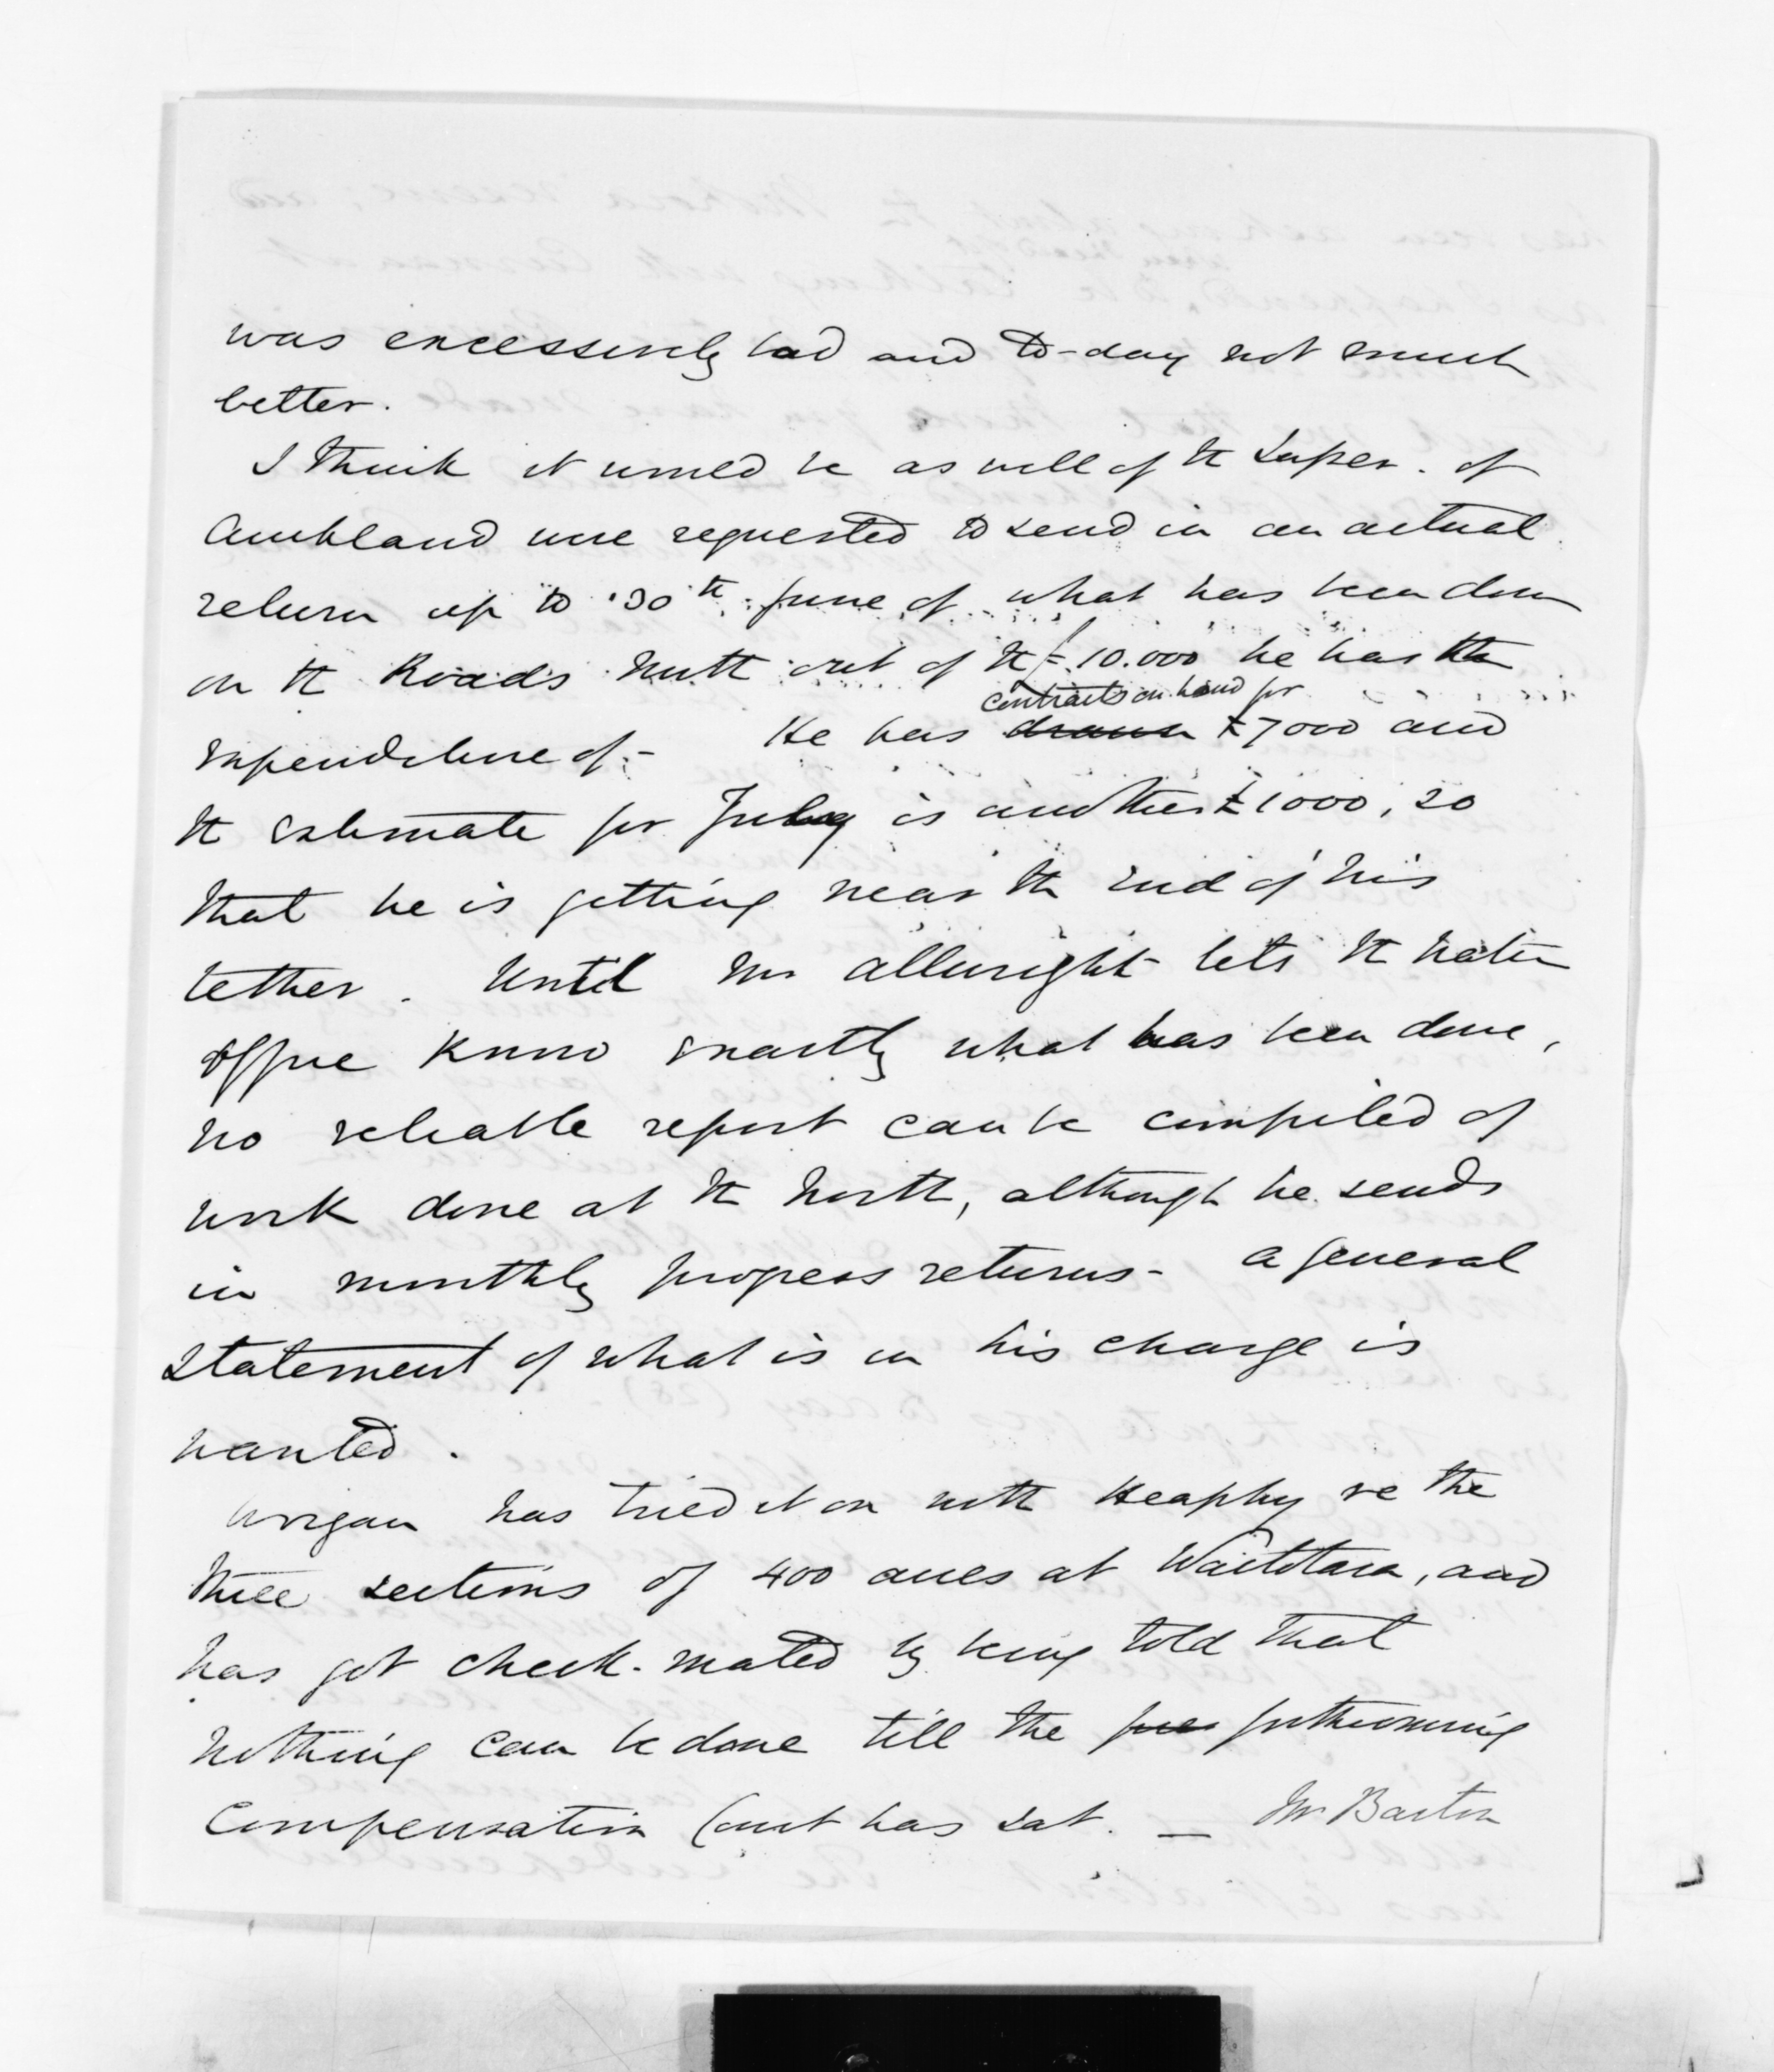 was excessively bad and to-day not much
better.
I think it would be as well if the Super. of
Auckland were requested to send in an actual
return up to 30th June of what has been done
on the Roads North out of the £10.000 he has the
contracts on hand for
expenditure of - He has drawn £7000 and
the estimate for July is another £1000, so
that he is getting near the end of his
tether. Until Mr Allwright lets the Native
Office know exactly what has been done,
no reliable report can be compiled of
work done at the North, although he sends
in monthly progress returns - a general
statement of what is in his charge is
wanted.
Worgan has tried it on with Heaphy re the
three sections of 400 acres at Waitotara, and
has got check-mated by being told that
nothing can be done till the forthcoming
Compensation Court has sat. — Mr Barton